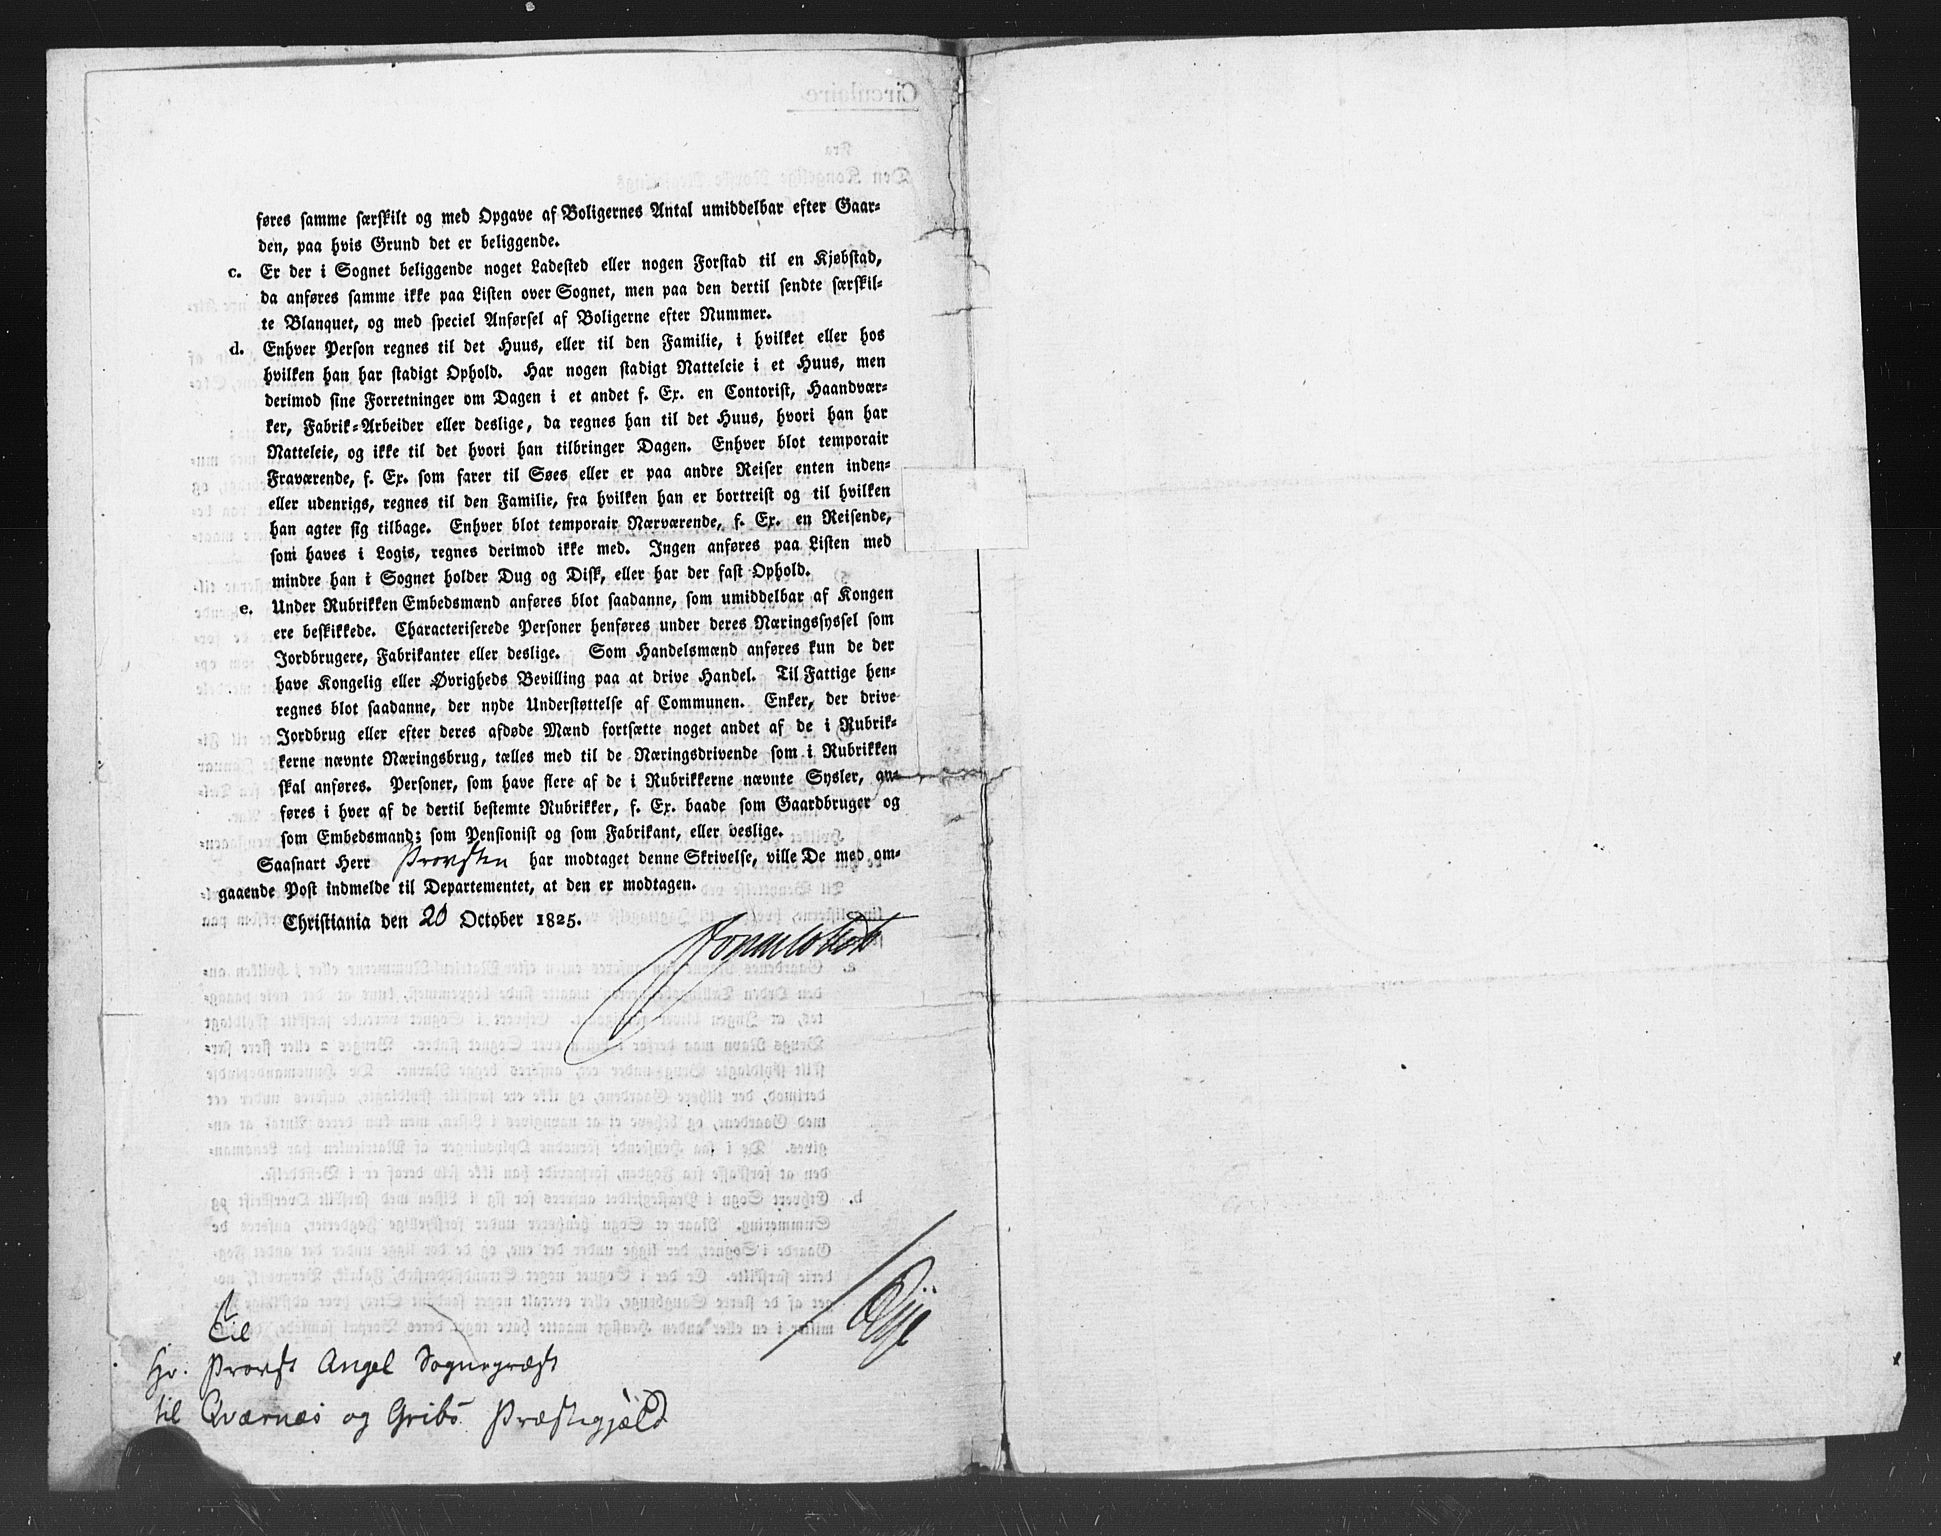 føres samme særskilt og med Opgave af Boligernes Antal umiddelbar efter Gaar-
den, paa hvis Grund det er beliggende.
c. Er der i Sognet beliggende noget Ladested eller nogen Forstad til en Kjøbstad,
da anføres samme ikke paa Listen over Sognet, men paa den dertil sendte særskil-
te Blanquet, og med speciel Anførsel af Boligerne efter Nummer.
d. Enhver Person regnes til det Huus, eller til den Familie, i hvilket eller hos
hvilken han har stadigt Ophold. Har nogen stadigt Natteleie i et Huus, men
derimod sine Forretninger om Dagen i et andet f. Ex. en Contorist, Haandvær-
ker, Fabrik-Arbeider eller deslige, da regnes han til det Huus, hvori han har
Natteleie, og ikke til det hvori han tilbringer Dagen. Enhver blot temporair
Fraværende, f. Ex. som farer til Søes eller er paa andre Reiser enten inden-
eller udenrigs, regnes til den Familie, fra hvilken han er bortreist og til hvilken
han agter sig tilbage. Enhver blot temporair Nærværende, f. Ex. en Reisende,
som haves i Logis, regnes derimod ikke med. Ingen anføres paa Listen med
mindre han i Sognet holder Dug og Disk, eller har der fast Ophold.
e. Under Rubrikken Embedsmænd anføres blot saadanne, som umiddelbar af Kongen
ere beskikkede. Characteriserede Personer henføres under deres Næringssyssel som
Jordbrugere, Fabrikanter eller deslige. Som Handelsmænd anføres kun de der
have Kongelig eller Øvrigheds Bevilling paa at drive Handel. Til Fattige hen-
regnes blot saadanne, der nyde Understøttelse af Communen. Enker, der drive
Jordbrug eller efter deres afdøde Mænd fortsætte noget andet af de i Rubrik-
kerne nævnte Næringsbrug, tælles med til de Næringsdrivende som i Rubrikken
skal anføres. Personer, som have flere af de i Rubrikkerne nævnte Sysler, an-
føres i hver af de dertil bestemte Rubrikker, f. Ex. baade som Gaardbruger og
som Embedsmand; som Pensionist og som Fabrikant, eller deslige.
Saasnart Herr Provsten har modtaget denne Skrivelse, ville De med om-
gaaende Post indmelde til Departementet, at den er modtagen.
Christiania den 20 October 1825.
Til
Hr. Provst Angel Sognepræst
til Qværnæs og Gribs Præstegjæld